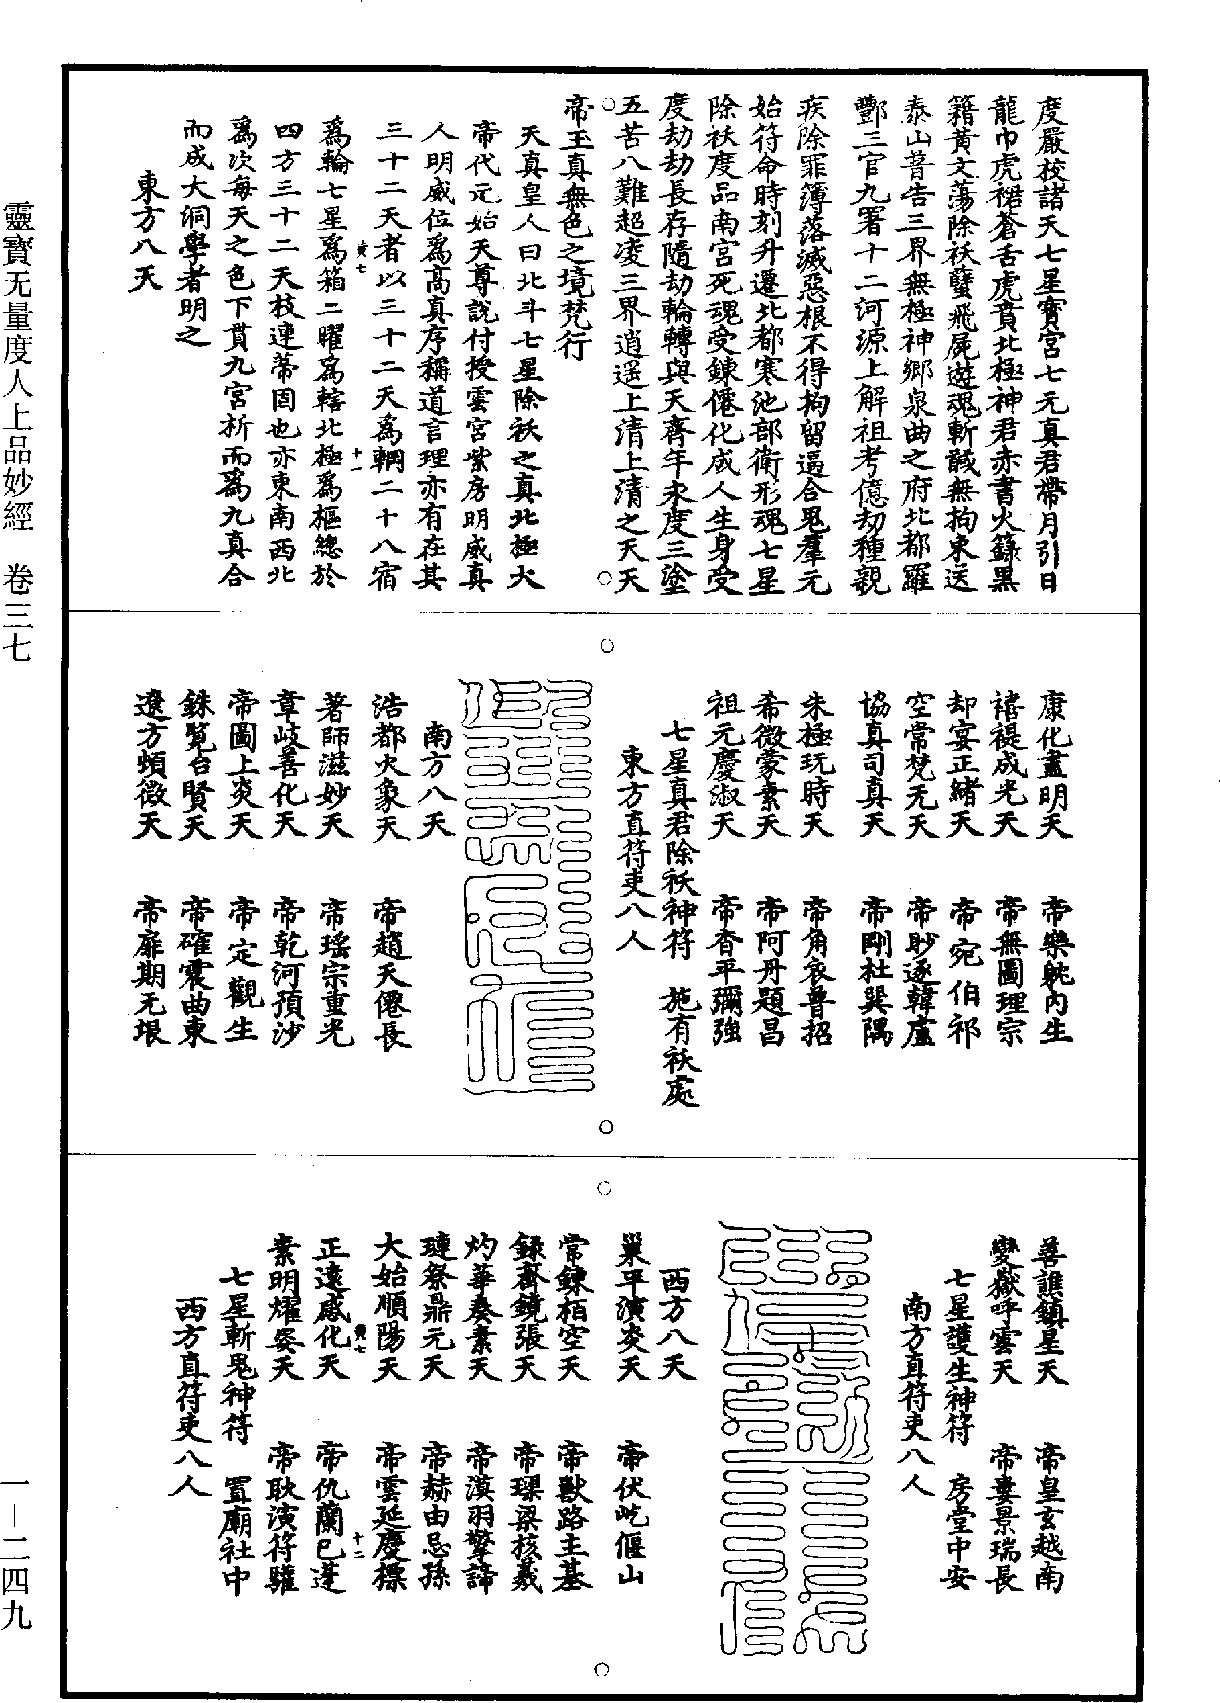 度嚴校諸天七星寶宮七元真君帶月引日
龍巾虎裙蒼舌虎賁北極神君赤書火籙黑
籍黃文蕩除祅孽飛屍遊魂斬馘無拘束送
泰山普告三界無極神鄉泉曲之府北都羅
酆三官九署十二河源上解祖考億劫種親
疾除罪簿落滅惡根不得拘留逼合鬼羣元
始符命時刻升遷北都寒池部衛形魂七星
除祅度品南宮死魂受鍊僊化成人生身受
度劫劫長存隨劫輪轉與天齊年永度三塗
五苦八難超凌三界逍遥上清上清之天天
帝玉真無色之境梵行
天真皇人曰北斗七星除祅之真北極大
帝代元始天尊說付授雲宮紫房明威真
人明威位爲高真序稱道言理亦有在其
三十二天者以三十二天爲輞二十八宿
黃七
十一
爲輪七星爲箱二曜爲轄北極爲樞總於
四方三十二天枝連蔕固也亦東南西北
爲次每天之色下貫九宮析而爲九真合
而成大洞學者明之
東方八天
康化晝明天 帝樂䠶內生
禇禔成光天 帝無圖理宗
却宴正緒天 帝宛伯祁
空常梵无天 帝眇逐韓盧
協真司真天 帝剛杜巽隅
朱極玩時天 帝角哀普招
希微蒙素天 帝阿丹題昌
祖元慶淑天 帝杳平彌強
七星真君除祅神符 施有祅處
東方直符吏八人
南方八天
浩都火象天 帝趙天僊長
著師滋妙天 帝瑶宗重光
章岐善化天 帝乾河預沙
帝圖上炎天 帝定觀生
銖覽台賢天 帝確震曲東
遼方蝢微天 帝扉期无垠
善譙鎮星天 帝皇玄越南
變嶽呼雲天 帝婁景瑞長
七星護生神符 房堂中安
南方直符吏八人
西方八天
巢平演炎天 帝伏屹偃山
常鍊栢空天 帝獸路主基
録齋鏡張天 帝琛梁核羲
灼華奏素天 帝漠羽擎諦
璉祭鼎元天 帝赫由忌孫
大始順陽天 帝雲延慶標
黃七
十二
正遠感化天 帝仇蘭巴蓬
素明耀姿天 帝耿演符驩
七星斬鬼神符 置廟社中
西方直符吏八人
靈寶无量度人上品妙經 卷三七
一—二四九